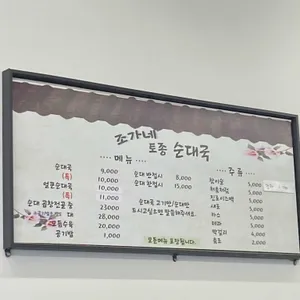 조가네
토종 순대국
···· 메뉴 ····
순대국 9,000
(특) 10,000
얼큰순대국 10,000
(특) 11,000
순대 곱창전골 중 23,000
대 28,000
모듬수육 20,000
공기밥 1,000
순대 반접시 8,000
순대 한접시 15,000
순대국 고기만/순대만
드시고싶으면 말씀해주세요.
모든메뉴 포장됩니다.
···· 주류 ····
참이슬 5,000
처음처럼 5,000
진로이즈백 5,000
새로 5,000
카스 5,000
테라 5,000
막걸리 4,000
음료 2,000